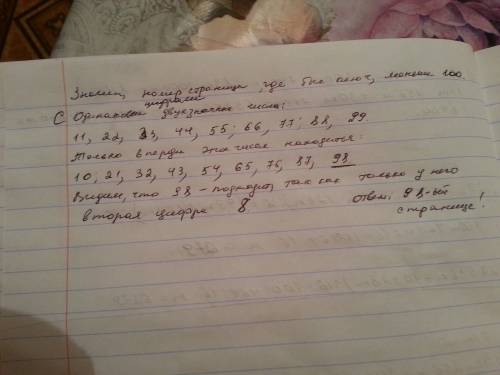 Значит, номер страницы, где был ключ, меньше 100.
С Одинаковыми цифрами двухзначные числа:
11, 22, 33, 44, 55; 66, 77; 88, 99.
Только впереди этих чисел находится:
10, 21, 32, 43, 54, 65, 76, 87, 98
Видим, что 98 - подходит, так как только у него
вторая цифра 8. ответ: 98-ой
странице!